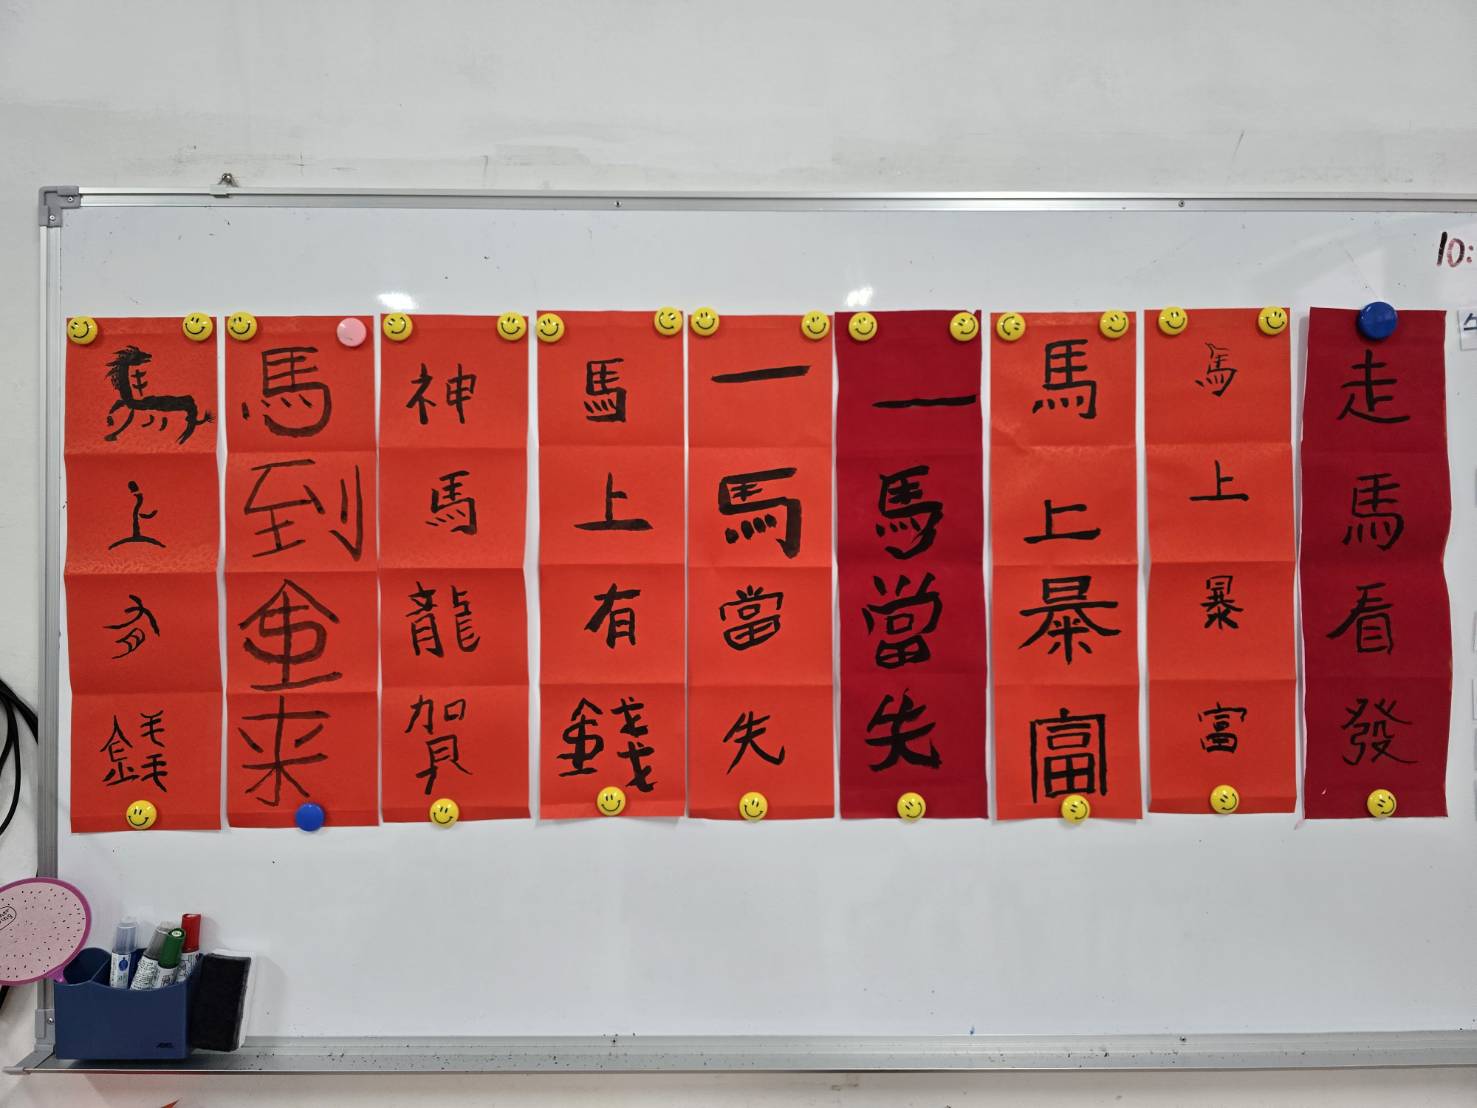 馬上有錢
馬到重来
神馬龍賀
馬上有錢
一馬當失
一馬當失
馬上暴富
馬上暴富
走馬看發
10: